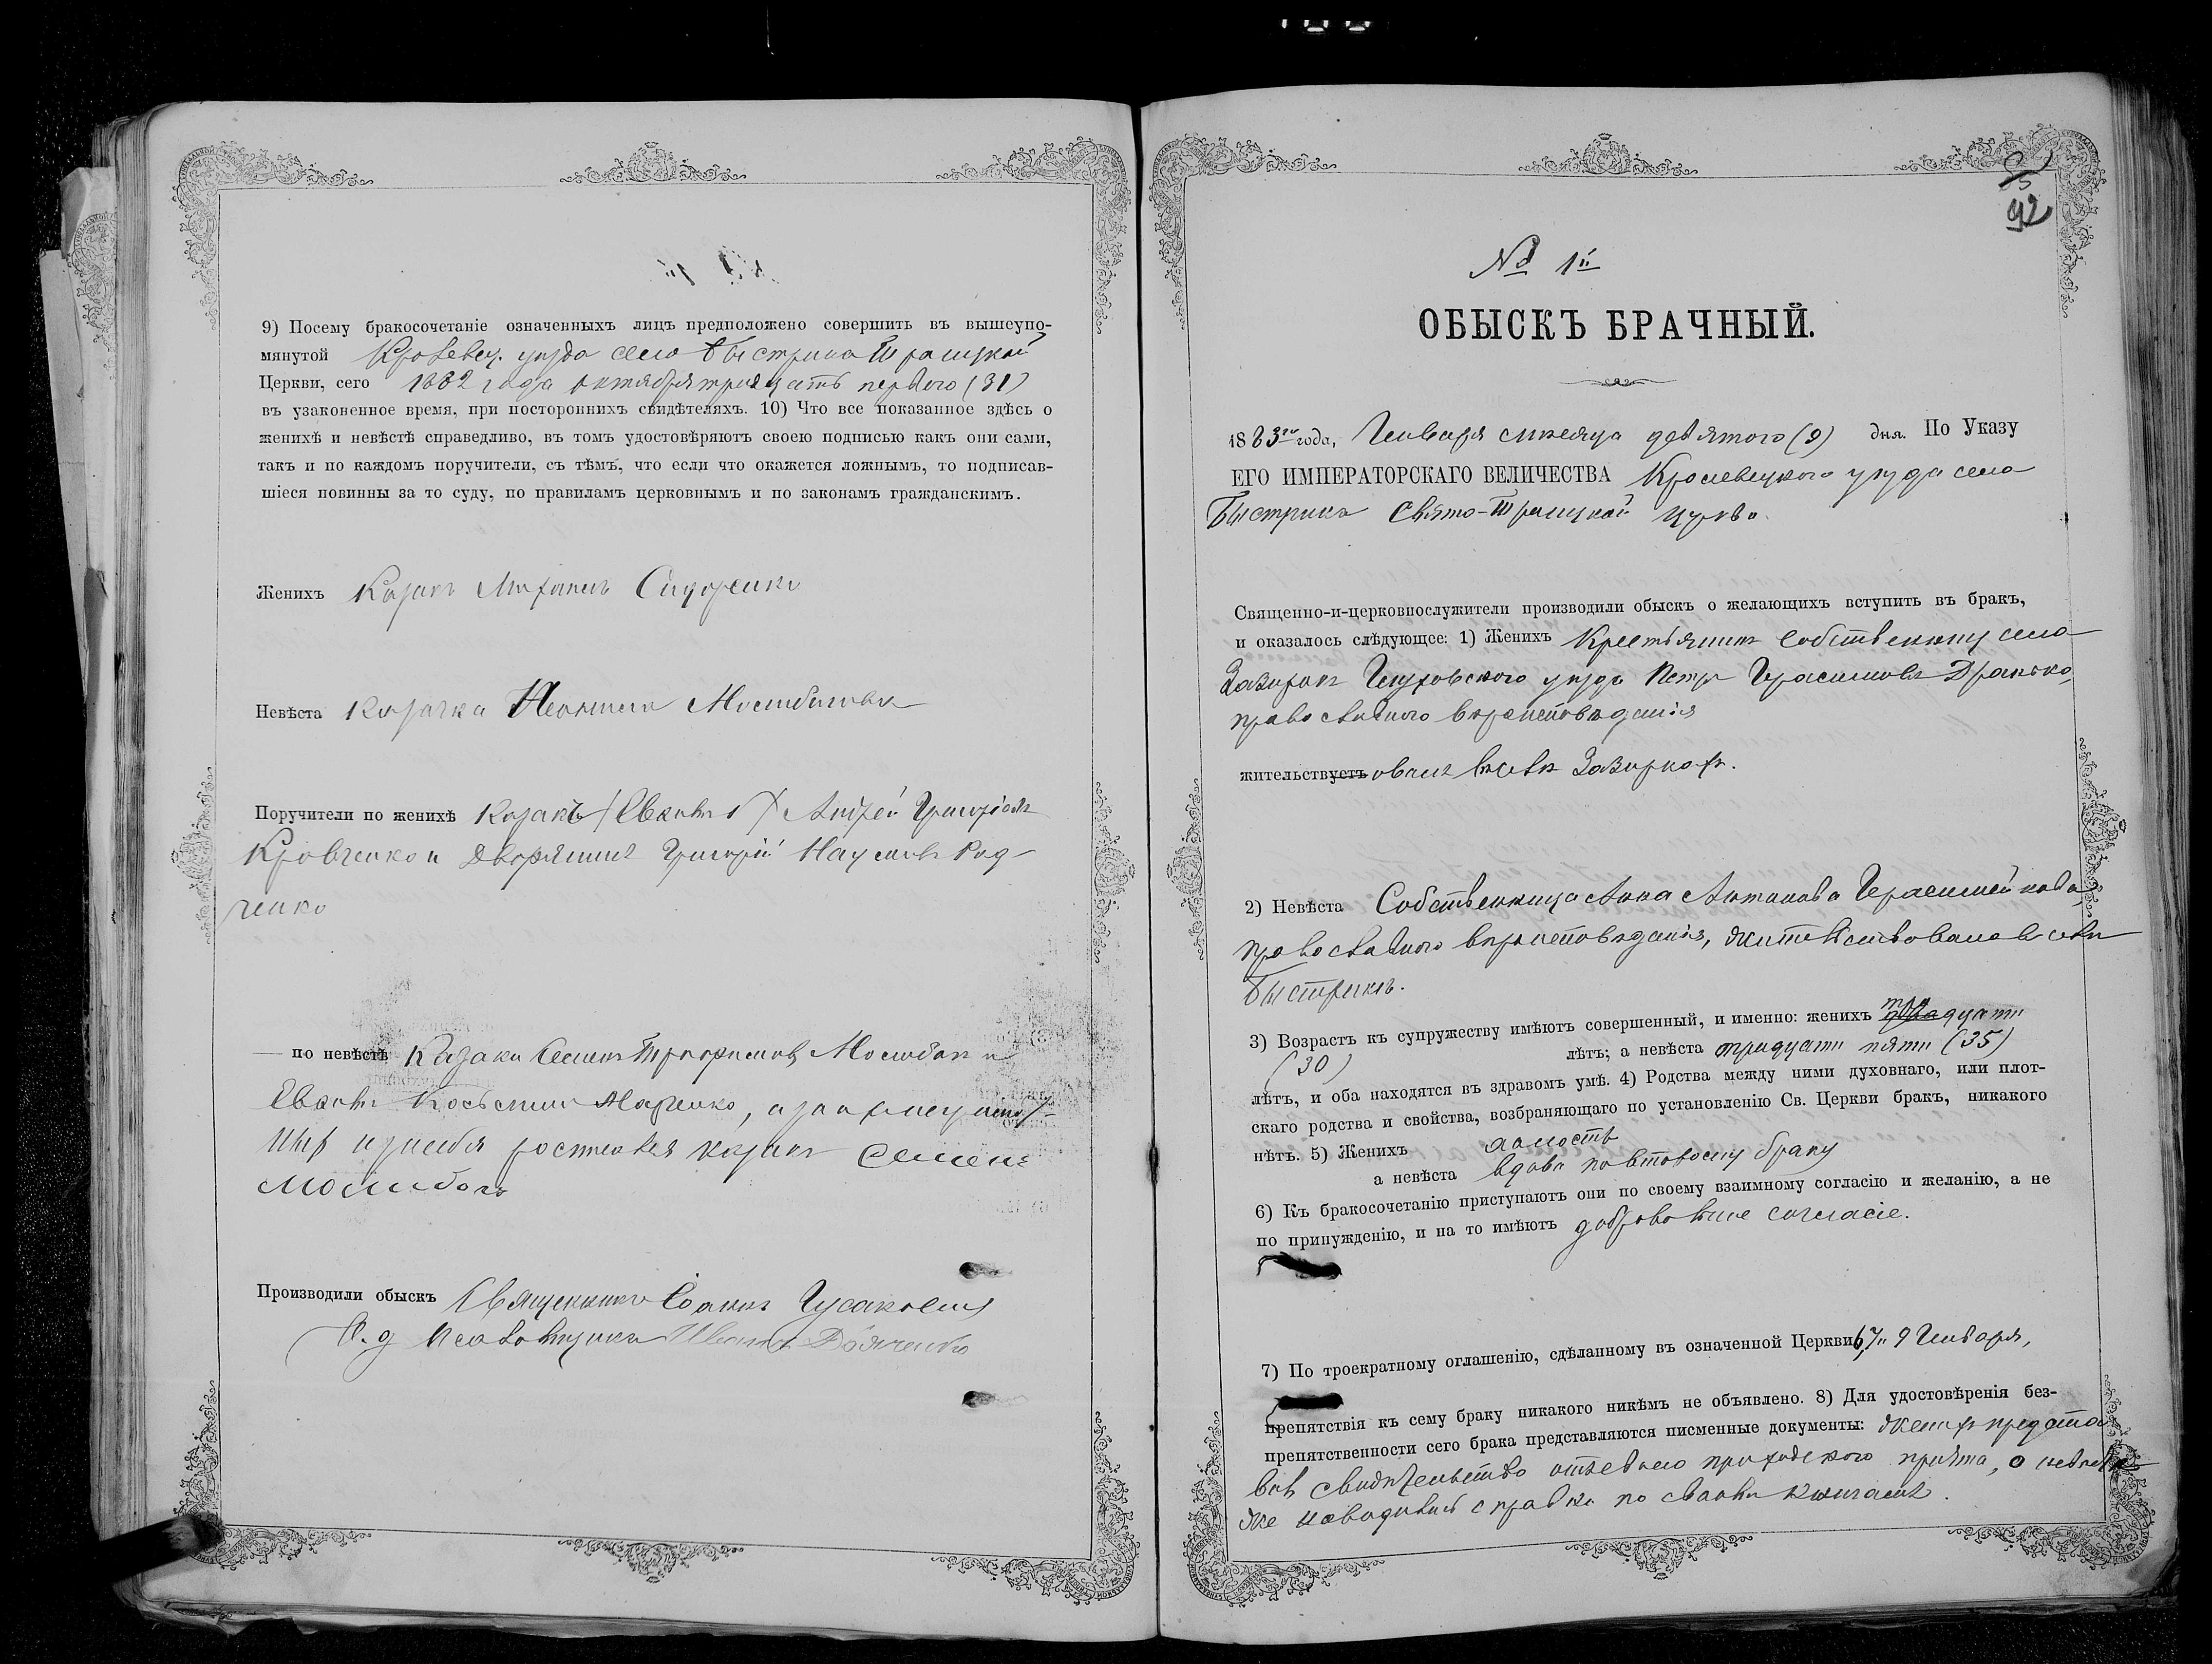 9) Посему бракосочетаніе означенныхъ лицъ предположено совершить въ вышеупо-
мянутой Кролевец. уѣзда села Быстрика Троицкой
Церкви, сего 1882 года октября тридцать первого (31)
въ узаконенное время, при постороннихъ свидѣтеляхъ. 10) Что все показанное здѣсь о
женихѣ и невѣстѣ справедливо, въ томъ удостовѣряютъ своею подписью какъ они сами,
такъ и по каждомъ поручители, съ тѣмъ, что если что окажется ложнымъ, то подписав-
шіеся повинны за то суду, по правиламъ церковнымъ и по законамъ гражданскимъ.
Женихъ Казакъ Михаилъ Сидоренко
Невѣста Казачка
Поручители по женихѣ Казакъ Андрей Григоріевъ
Кравченко и Дворянинъ Григорій Наумовъ Рад-
ченко
по невѣстѣ Казаки Семенъ Трофимовъ и
Косьминъ Марченко, а за
и за себя росписался казакъ Семенъ
Производили обыскъ Священникъ Іоаннъ
И. д. Псаломщика Иванъ
92
№ 1й
ОБЫСКЪ БРАЧНЫЙ.
1883го года, Генваря мѣсяца девятого (9) дня. По Указу
ЕГО ИМПЕРАТОРСКАГО ВЕЛИЧЕСТВА Кролевецкого уѣзда села
Быстрика Свято-Троицкой церкви
Священно-и-церковнослужители производили обыскъ о желающихъ вступить въ бракъ,
и оказалось слѣдующее: 1) Женихъ Крестьянинъ собственникъ села
Зазирокъ Глуховского уѣзда Петръ Герасимовъ Дранько,
православного вѣроисповѣданія
жительствуетъ овалъ въ селѣ Зазиркахъ.
2) Невѣста Собственница Анна Антонова Герасимейкова,
православного вѣроисповѣданія, жительствовала в селѣ
Быстрикѣ.
3) Возрастъ къ супружеству имѣютъ совершенный, и именно: женихъ тридцати
(30) лѣтъ; а невѣста тридцати пяти (35)
лѣтъ, и оба находятся въ здравомъ умѣ. 4) Родства между ними духовнаго, или плот-
скаго родства и свойства, возбраняющаго по установленію Св. Церкви бракъ, никакого
нѣтъ. 5) Женихъ холостъ
а невѣста вдова по второму браку
6) Къ бракосочетанію приступаютъ они по своему взаимному согласію и желанію, а не
по принужденію, и на то имѣютъ добровольное согласіе.
7) По троекратному оглашенію, сдѣланному въ означенной Церкви 6, 7 и 9 Генваря,
препятствія къ сему браку никакого никѣмъ не объявлено. 8) Для удостовѣренія без-
препятственности сего брака представляются писменные документы: женихъ предста
вилъ свидѣтельство отъ своего приходского причта, о невѣстѣ
же наводились справки по своимъ книгамъ.